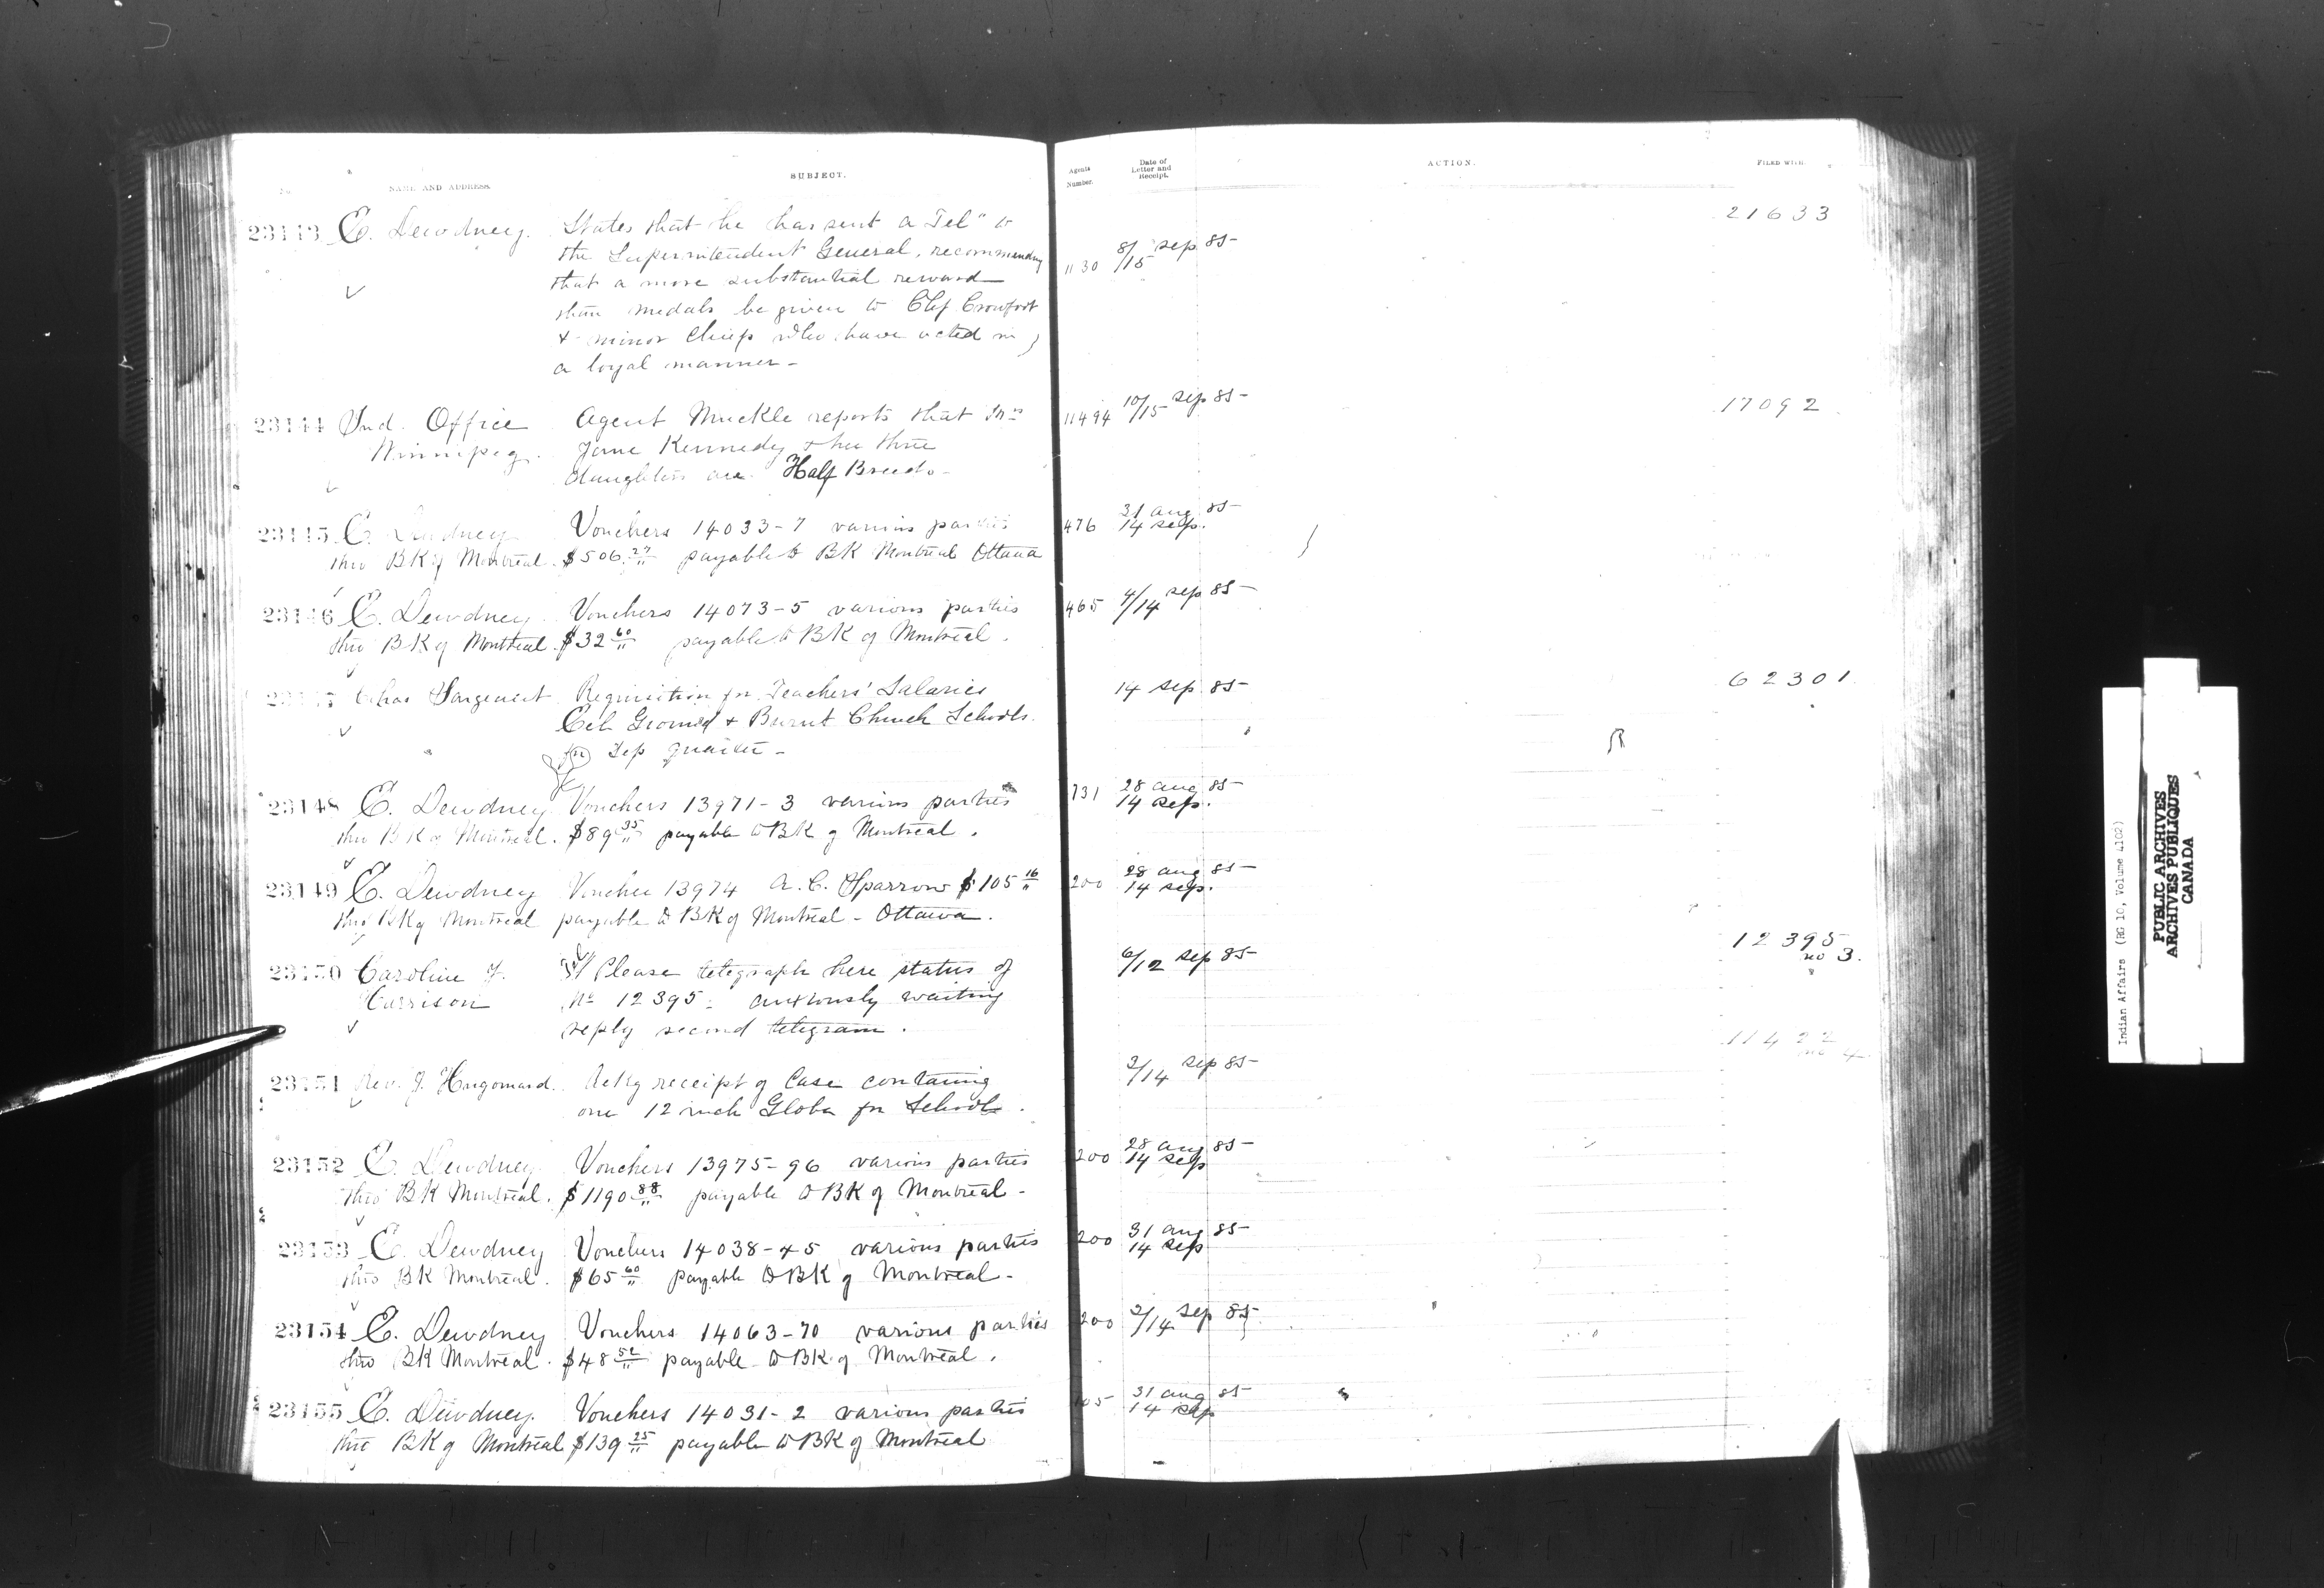 NAME AND ADDRESS.
SUBJECT.
Agents Number.
Date of Letter and Receipt.
ACTION.
FILED WITH.
23143 E. Dewdney. States that he has sent a Tel" to
the Superintendent General, recommending
that a more substantial reward
than medals be given to Chf Crowfoot
& minor Chiefs who have acted in
a loyal manner -
1130 8/15 Sep 85 21633
23144 Ind. Office Agent Muckle reports that Mrs
Winnipeg. Jane Kennedy & her three
daughters are Half Breeds -
11494 10/15 Sep 85 17092
23145 E. Dewdney Vouchers 14033-7 various parties
thro BK of Montreal. $506.27 payable to BK Montreal Ottawa
476 31 aug 85
14 Sep.
23146 E. Dewdney Vouchers 14073-5 various parties
thro BK of Montreal. $32 60 payable to BK of Montreal.
465 4/14 Sep 85
23147 Chas Sargeant Requisition for Teachers' Salaries
Eel Ground & Burnt Church Schools.
for Sep quarter -
14 Sep 85 62301
23148 E. Dewdney Vouchers 13971-3 various parties
thro BK of Montreal. $89 35 payable to BK of Montreal.
731 28 aug 85
14 Sep.
23149 E. Dewdney Voucher 13974 A. C. Sparrow $105 16
thro BK of Montreal payable to BK of Montreal - Ottawa.
200 28 aug 85
14 Sep.
23150 Caroline J. Please telegraph here status of
Harrison No 12395. anxiously waiting
reply second telegram.
6/12 Sep 85 12395
no 3.
23151 Rev. J. Hugonard. Ackg receipt of Case containing
one 12 inch Globe for Schools.
2/14 Sep 85 11422
no 4
23152 E. Dewdney Vouchers 13975-96 various parties
thro BK Montreal. $1190 88 payable to BK of Montreal -
200 28 aug 85
14 Sep
23153 E. Dewdney Vouchers 14038-45 various parties
thro BK Montreal. $65 60 payable to BK of Montreal -
200 31 aug 85
14 Sep
23154 E. Dewdney Vouchers 14063-70 various parties
thro BK Montreal. $48 52 payable to BK of Montreal.
200 2/14 Sep 85
23155 E. Dewdney. Vouchers 14031-2 various parties
thro BK of Montreal $139 25 payable to BK of Montreal
105 31 aug 85
14 Sep
Indian Affairs (RG 10, Volume 4102)
PUBLIC ARCHIVES
ARCHIVES PUBLIQUES
CANADA